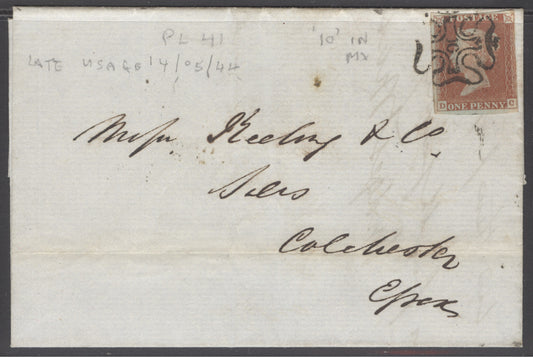 PL 41
'10' IN
MX
LATE USAGE 14/05/44
POSTAGE
10
D C
ONE PENNY
Messrs Keeling & Co
Colchester
Essex